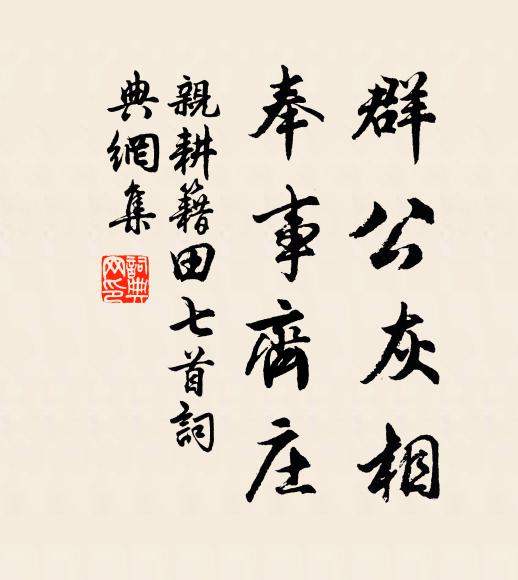 群公灰相
奉事齊庄
親耕籍田七首詞
典網集
詞典
网印